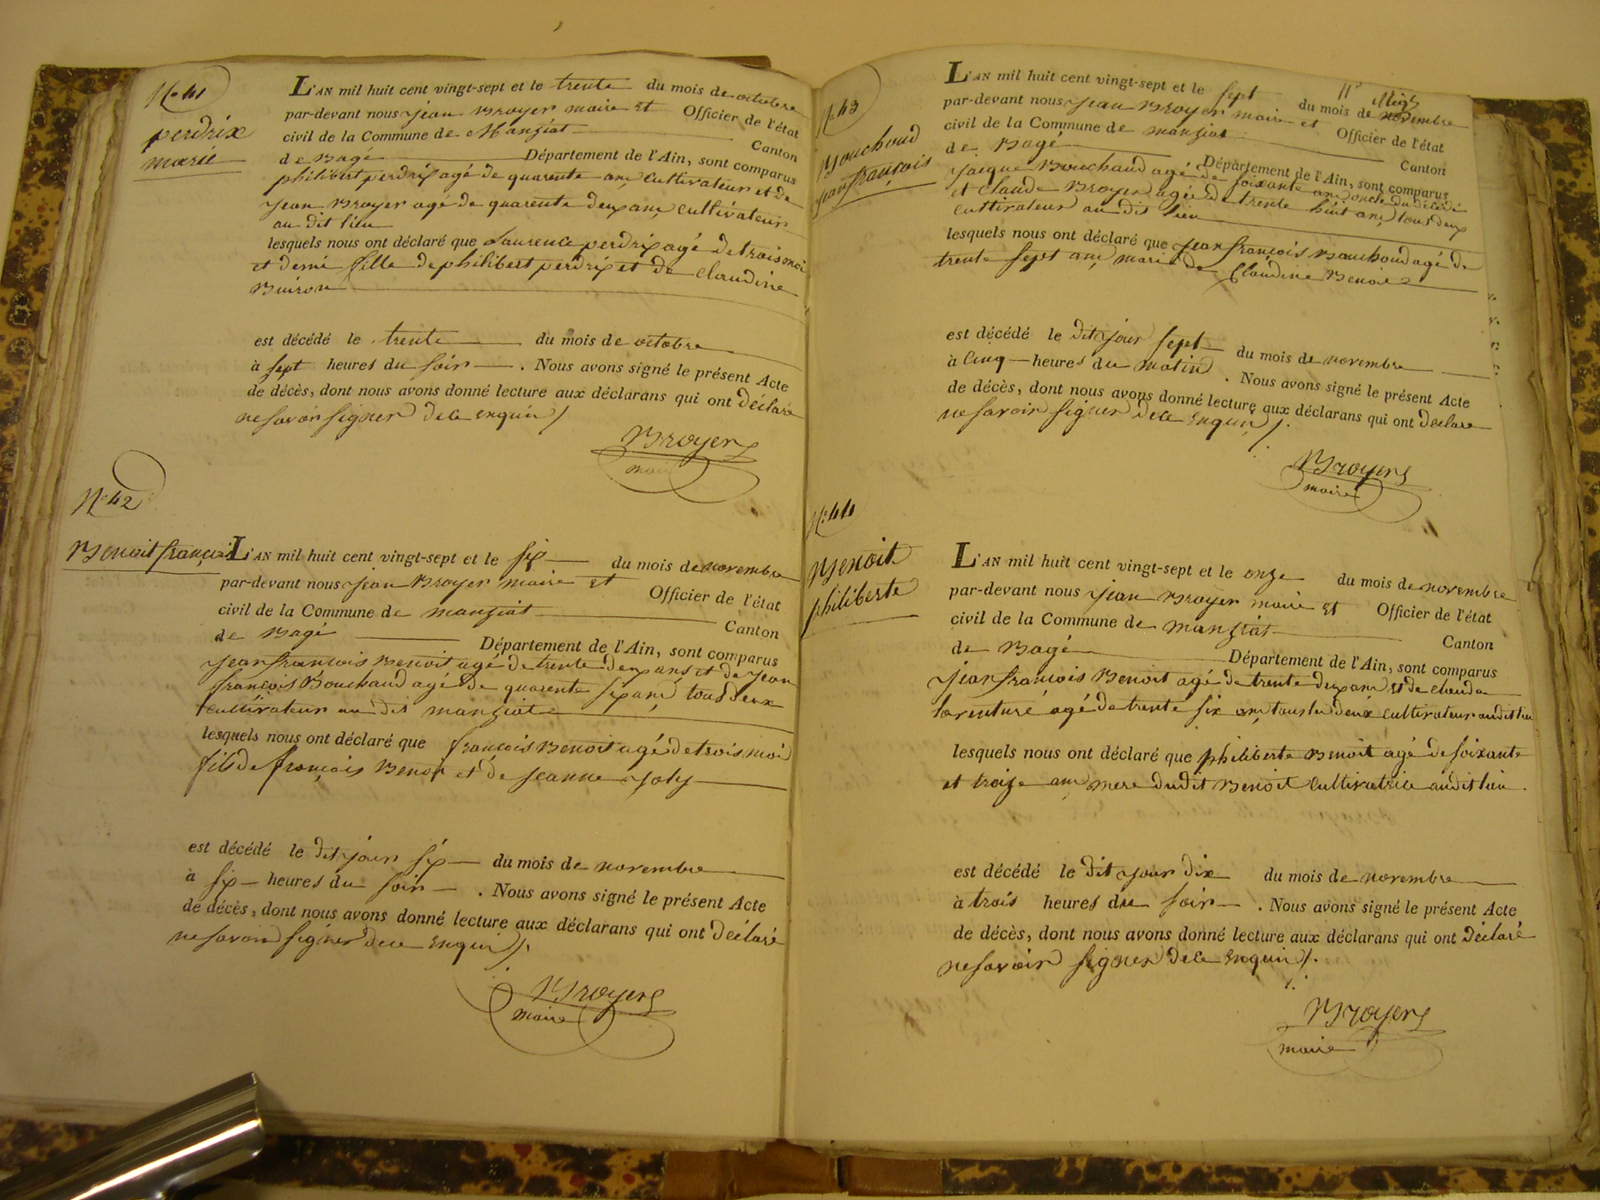 N° 41
perdrix
marie
L'AN mil huit cent vingt-sept et le trente du mois de octobre
par-devant nous jean Broyer maire et Officier de l'état
civil de la Commune de Manziat Canton
de Bagé Département de l'Ain, sont comparus
philibert perdrix agé de quarente ans cultivateur et de
jean Broyer agé de quarente deux ans cultivateur
au dit lieu
lesquels nous ont déclaré que Laurence perdrix agé de trois moi
et demi fille de philibert perdrix et de Claudine
Buiron
est décédé le trente du mois de octobre
à sept heures du soir . Nous avons signé le présent Acte
de décès, dont nous avons donné lecture aux déclarans qui ont déclaré
ne savoir signer de ce enquis /
Broyer
maire
N° 42
Benoit françois
L'AN mil huit cent vingt-sept et le six du mois de novembre
par-devant nous jean Broyer maire et Officier de l'état
civil de la Commune de manziat Canton
de Bagé Département de l'Ain, sont comparus
jean francois Benoit agé de trente deux ans et de jean
françois Bouchaud agé de quarente six ans tous deux
cultivateur au dit manziat
lesquels nous ont déclaré que françois Benoit agé de trois moi
fils de françois Benoit et de jeanne joly
est décédé le dit jour six du mois de novembre
à six heures du soir . Nous avons signé le présent Acte
de décès, dont nous avons donné lecture aux déclarans qui ont déclaré
ne savoir signer de ce enquis /.
Broyer
maire
N° 43
Bouchoud
jean françois
L'AN mil huit cent vingt-sept et le sept du mois de novembre
par-devant nous jean Broyer maire et Officier de l'état
civil de la Commune de manziat Canton
de Bagé Département de l'Ain, sont comparus
jacque Bouchaud agé de soixante ans oncle du décédé
et claude Broyer agée de trente huit ans tous deux
cultivateur au dit lieu
lesquels nous ont déclaré que jean françois Bouchoud agé de
trente sept ans marié de Claudine Benoit
est décédé le dit jour sept du mois de novembre
à cinq heures du matin . Nous avons signé le présent Acte
de décès, dont nous avons donné lecture aux déclarans qui ont déclaré
ne savoir signer de ce enquis /.
Broyer
maire
N° 44
Benoit
philiberte
L'AN mil huit cent vingt-sept et le onze du mois de novembre
par-devant nous jean Broyer maire et Officier de l'état
civil de la Commune de manziat Canton
de Bagé Département de l'Ain, sont comparus
jean francois Benoit agé de trente deux ans et de claude
agé de trente six ans tous les deux cultivateur au dit lieu
lesquels nous ont déclaré que philiberte Benoit agé de soixante
et treize ans mere du dit Benoit cultivatrice au dit lieu.
est décédé le dit jour dix du mois de novembre
à trois heures du soir . Nous avons signé le présent Acte
de décès, dont nous avons donné lecture aux déclarans qui ont déclaré
ne savoir signer de ce enquis /.
Broyer
maire